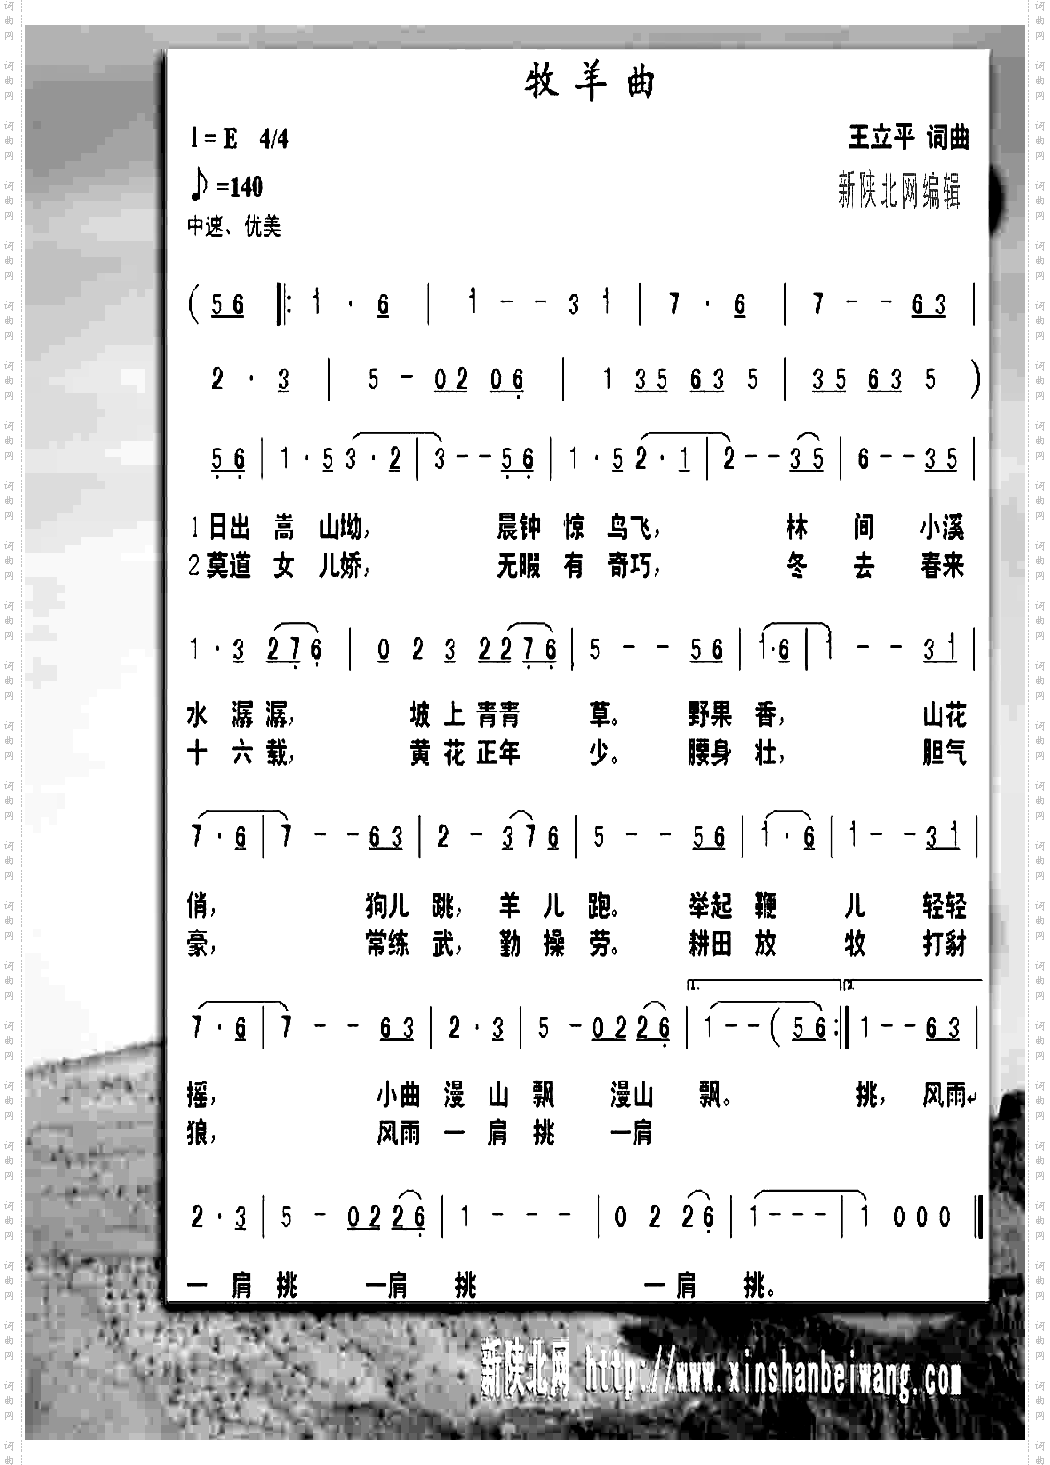 牧羊曲
1=E 4/4
王立平 词曲
♪=140
新陕北网编辑
中速、优美
( 5 6 ‖: 1 · 6 | 1 - - 3 1 | 7 · 6 | 7 - - 6 3 |
2 · 3 | 5 - 0 2 0 6 | 1 3 5 6 3 5 | 3 5 6 3 5 )
5 6 | 1 · 5 3 · 2 | 3 - - 5 6 | 1 · 5 2 · 1 | 2 - - 3 5 | 6 - - 3 5 |
1日出 嵩 山坳， 晨钟 惊 鸟飞， 林 间 小溪
2莫道 女 儿娇， 无暇 有 奇巧， 冬 去 春来
1 · 3 2 7 6 | 0 2 3 2 2 7 6 | 5 - - 5 6 | 1 · 6 | 1 - - 3 1 |
水 潺 潺， 坡 上 青青 草。 野果 香， 山花
十 六 载， 黄 花 正年 少。 腰身 壮， 胆气
7 · 6 | 7 - - 6 3 | 2 - 3 7 6 | 5 - - 5 6 | 1 · 6 | 1 - - 3 1 |
俏， 狗儿 跳， 羊 儿 跑。 举起 鞭 儿 轻轻
豪， 常练 武， 勤 操 劳。 耕田 放 牧 打豺
1. 2.
7 · 6 | 7 - - 6 3 | 2 · 3 | 5 - 0 2 2 2 6 | 1 - - ( 5 6 :‖ 1 - - 6 3 |
摇， 小曲 漫 山 飘 漫山 飘。 挑， 风雨↵
狼， 风雨 一 肩 挑 一肩
2 · 3 | 5 - 0 2 2 6 | 1 - - - | 0 2 2 6 | 1 - - - | 1 0 0 0 ‖
一 肩 挑 一肩 挑 一 肩 挑。
新陕北网 http://www.xinshanbeiwang.com